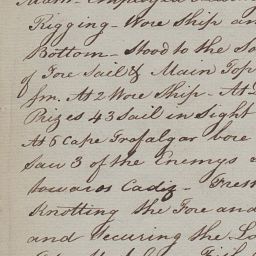 Rigging - Wore Ship an
Bottom - Stood to the So
of Fore Sail & Main Top
fm. At 2 Wore Ship - At
Prizes 43 Sail in Sight
At 5 Cape Trafalgar bore
Saw 3 of the Enemys
towards Cadiz - Fres
Knotting the Fore and
and Securing the Lo